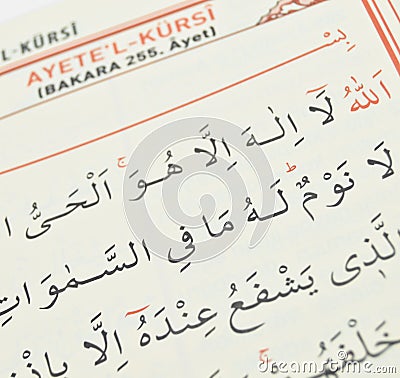 L-KÜRSÎ
AYETE'L-KÜRSÎ
(BAKARA 255. Âyet)
بِسْـ
اَللّٰهُ لَٓا اِلٰـهَ اِلَّا هُوَۚ اَلْحَيُّ ا
لَا نَوْمٌۜ لَـهُ مَا فِي السَّـمٰوَاتِ
الَّذ۪ى يَشْفَعُ عِنْدَهُٓ اِلَّا بِاِذْنِ
خَلْفَهُمْۚ
dreamstime.com